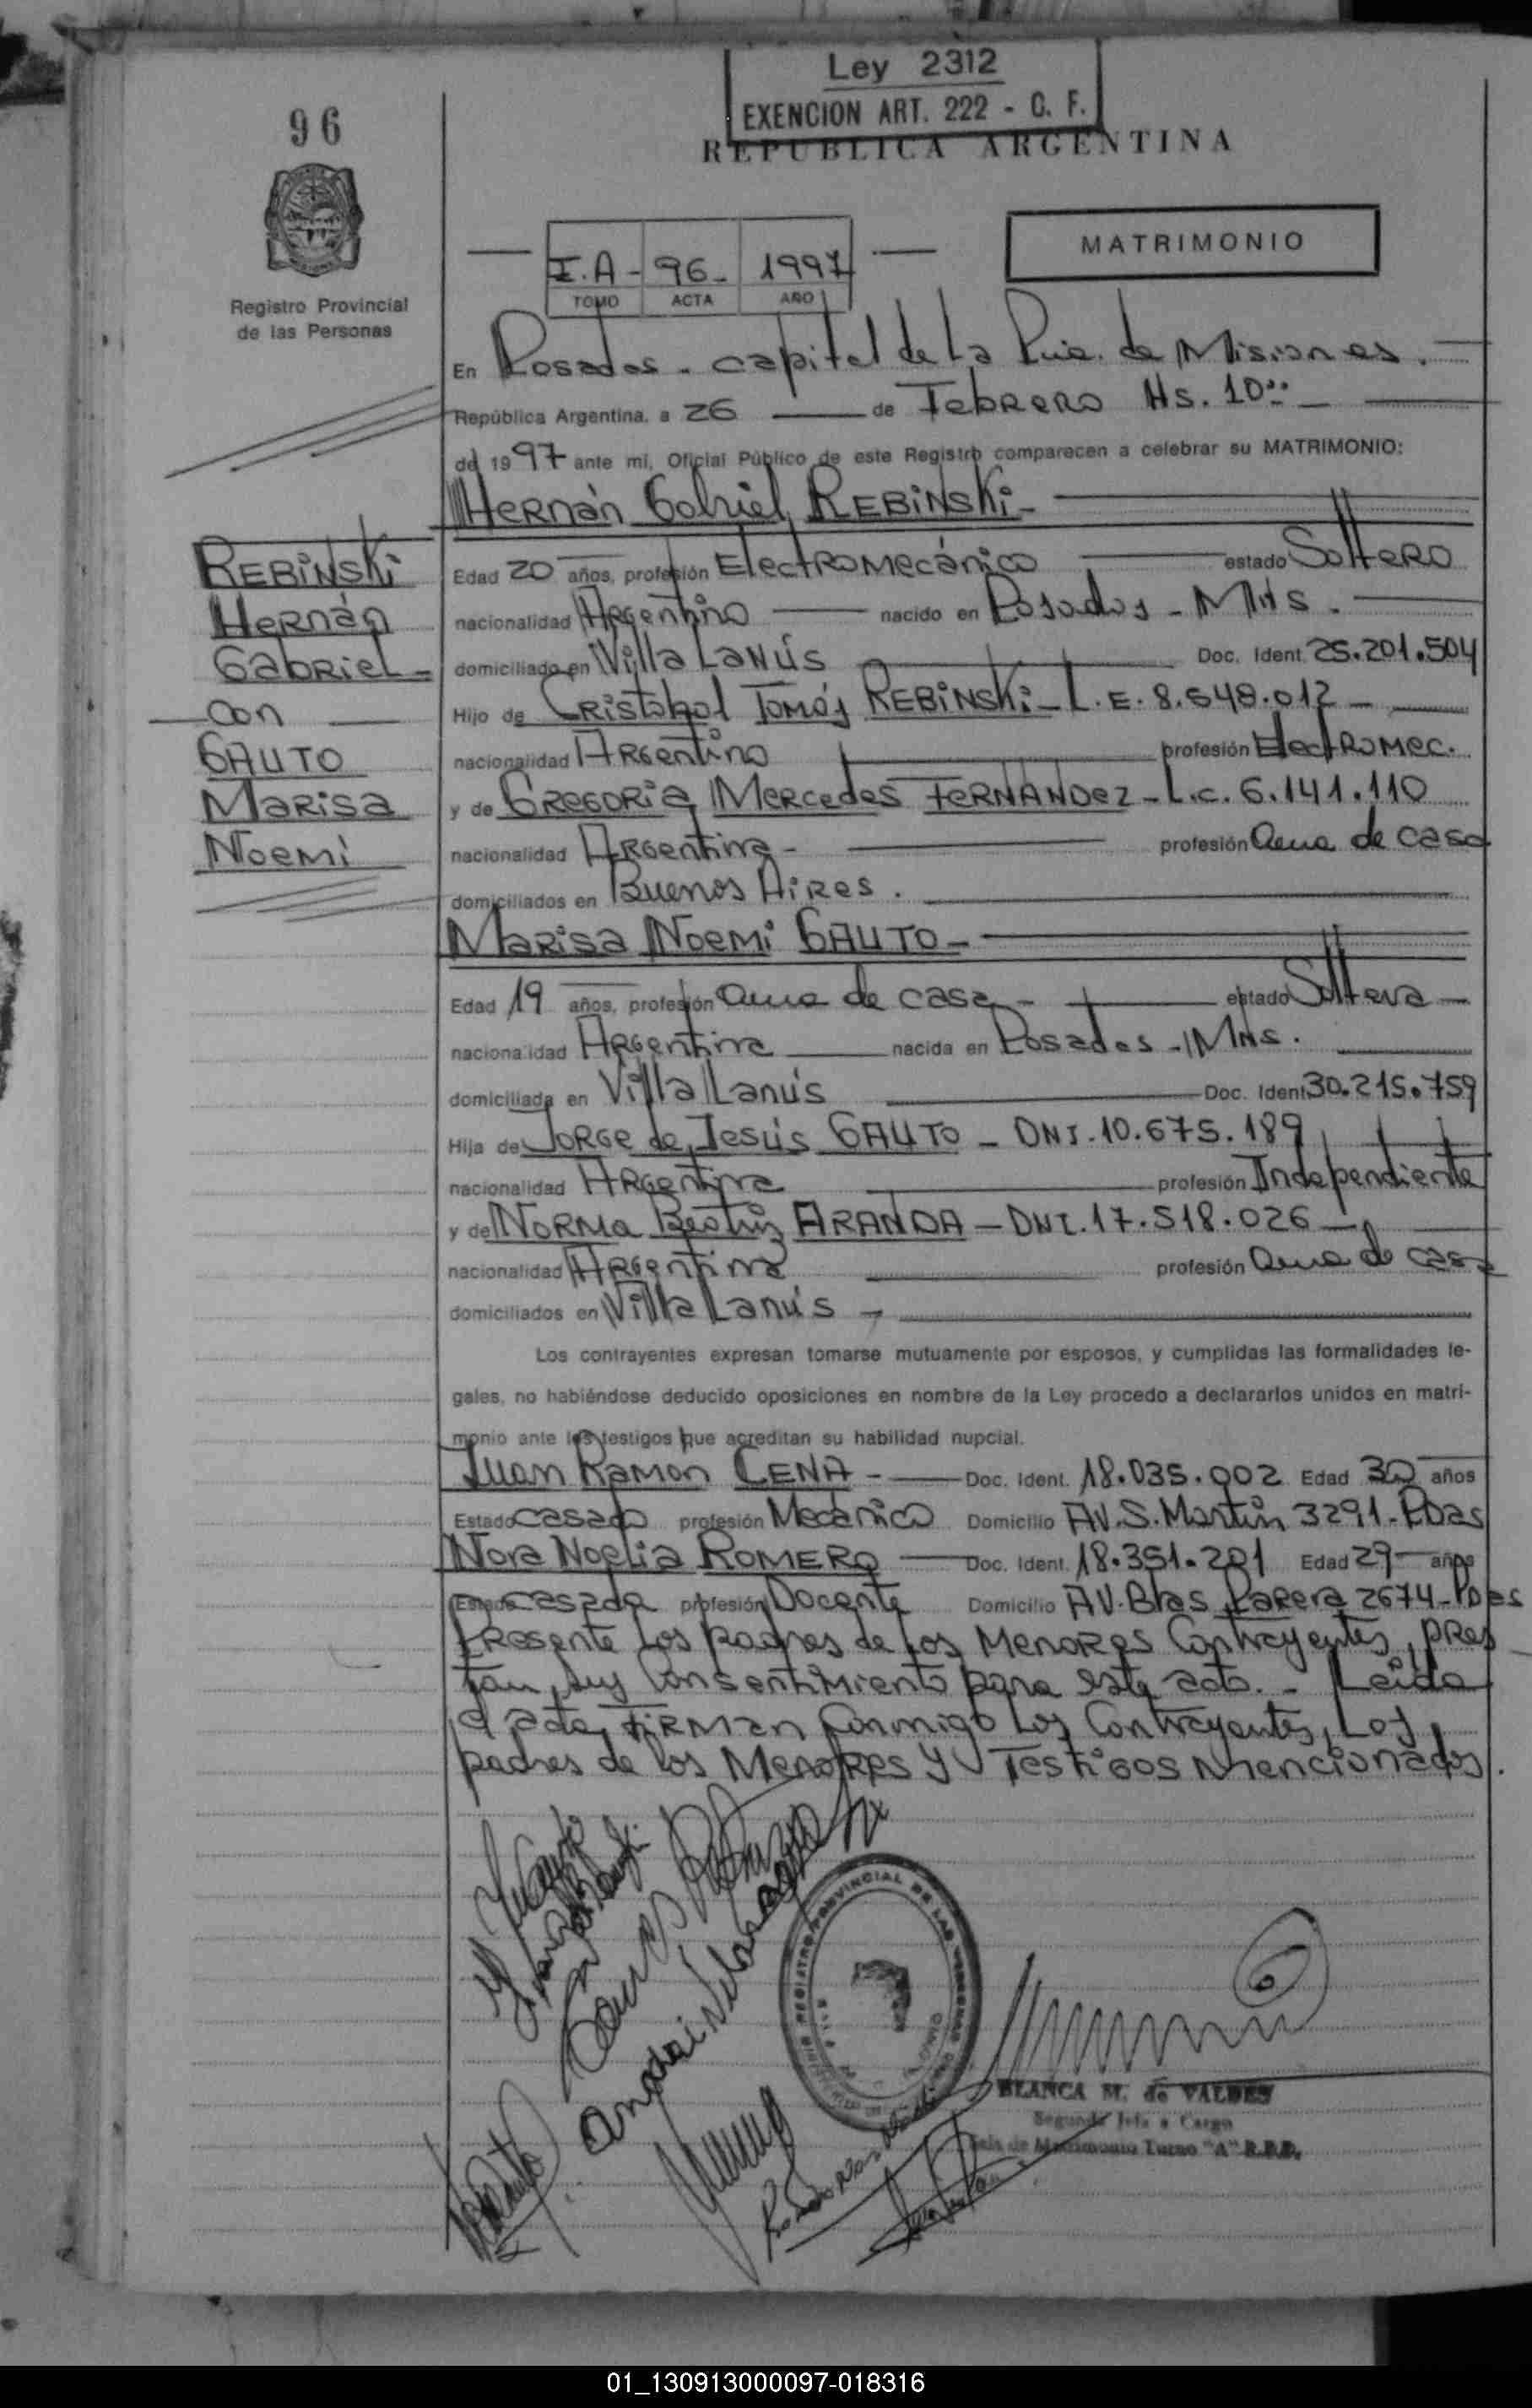 Ley 2312
EXENCION ART. 222 - C. F.
96
REPUBLICA ARGENTINA
MATRIMONIO
I.A - 96 - 1997
TOMO ACTA AÑO
Registro Provincial
de las Personas
En Posadas - capital de La Pcia. de Misiones.
República Argentina, a 26 de Febrero Hs. 10:00
de 1997 ante mi, Oficial Público de este Registro comparecen a celebrar su MATRIMONIO:
Hernán Gabriel REBiNSKi -
Edad 20 años, profesión Electromecánico estado Soltero
nacionalidad Argentino nacido en Posadas - Mnes.
domiciliado en Villa Lanús Doc. Ident. 25.201.504
Hijo de Cristobal Tomás REBiNSKi - L.E. 8.548.012 -
nacionalidad Argentino profesión Electromec.
y de Gregoria Mercedes FERNANDEZ - L.C. 6.141.110
nacionalidad Argentina - profesión ama de casa
domiciliados en Buenos Aires.
REBiNSKi
Hernán
Gabriel -
con
GAUTO
Marisa
Noemi
Marisa Noemi GAUTO -
Edad 19 años, profesión ama de casa - estado Soltera
nacionalidad Argentina nacida en Posadas - Mnes.
domiciliada en Villa Lanús Doc. Ident 30.215.759
Hija de Jorge de Jesús GAUTO - DNI. 10.675.189
nacionalidad Argentina profesión Independiente
y de Norma Beatriz ARANDA - DNI. 17.518.026 -
nacionalidad Argentina profesión ama de casa
domiciliados en Villa Lanús -
Los contrayentes expresan tomarse mutuamente por esposos, y cumplidas las formalidades le-
gales, no habiéndose deducido oposiciones en nombre de la Ley procedo a declararlos unidos en matri-
monio ante los testigos que acreditan su habilidad nupcial.
Juan Ramon CENA - Doc. Ident. 18.035.002 Edad 30 años
Estado casado profesión Mecánico Domicilio AV. S. Martín 3291 - Pdas
Nora Noelia ROMERO Doc. Ident. 18.351.201 Edad 29 años
Estado casada profesión Docente Domicilio AV. Blas Parera 2674 - Pdas
Presente Los padres de los Menores Contrayentes, pres
tan sus Consentimiento para este acto. - Leida
el acta, Firman conmigo Los Contrayentes, Los
padres de los Menores y Testigos mencionados.
BLANCA M. de VALDES
Segunda Jefa a Cargo
Sala de Matrimonio Turno "A" R.P.P.
01_130913000097-018316